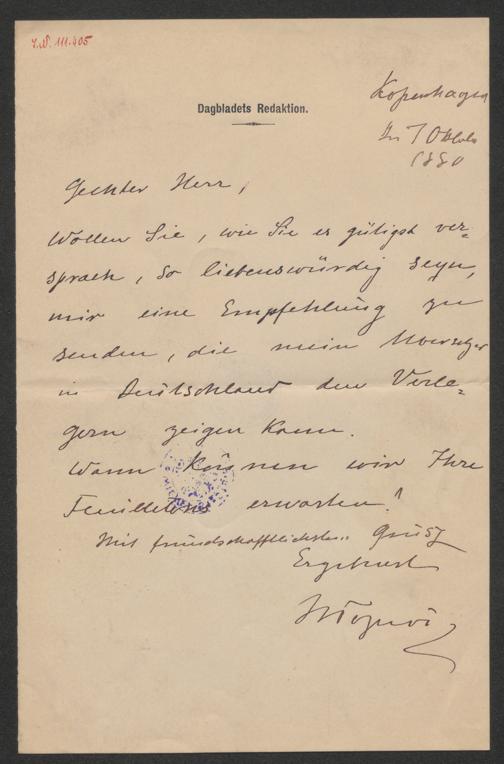 I.N. 111.405
Dagbladets Redaktion.
Kopenhagen
7 Oktob
1880
Geehrter Herr,
Wollen Sie, wie Sie es gütigst ver=
sprach, so liebenswürdig seyn,
mir eine Empfehlung zu
senden, die mein
in Deütschland den Verle=
gern zeigen kann.
Wann können wir Ihre
Feuilletons erwarten?
Mit freundschafftlichsten Grüsz
Ergebenst